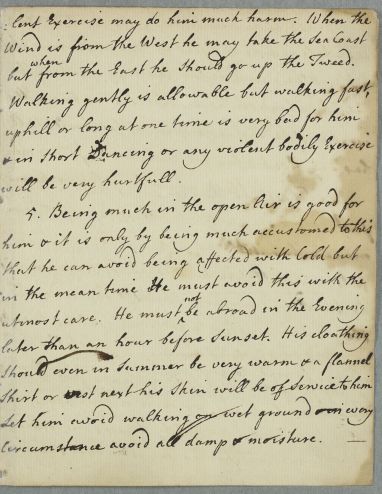 lent Exercise may do him much harm. When the
Wind is from the West he may take the Sea Coast
but when from the East he should go up the Tweed.
Walking gently is allowable but walking fast,
uphill or long at one time is very bad for him
& in short Dancing or any violent bodily Exercise
will be very hurtfull.
5. Being much in the open Air is good for
him & it is only by being much accustomed to this
that he can avoid being affected with Cold but
in the mean time He must avoid this with the
utmost care. He must not be abroad in the Evening
later than an hour before sunset. His cloathing
should even in Summer be very warm & a flannel
Shirt or vest next his skin will be of service to him
Let him avoid walking on wet ground & in every
Circumstance avoid all damp & moisture.